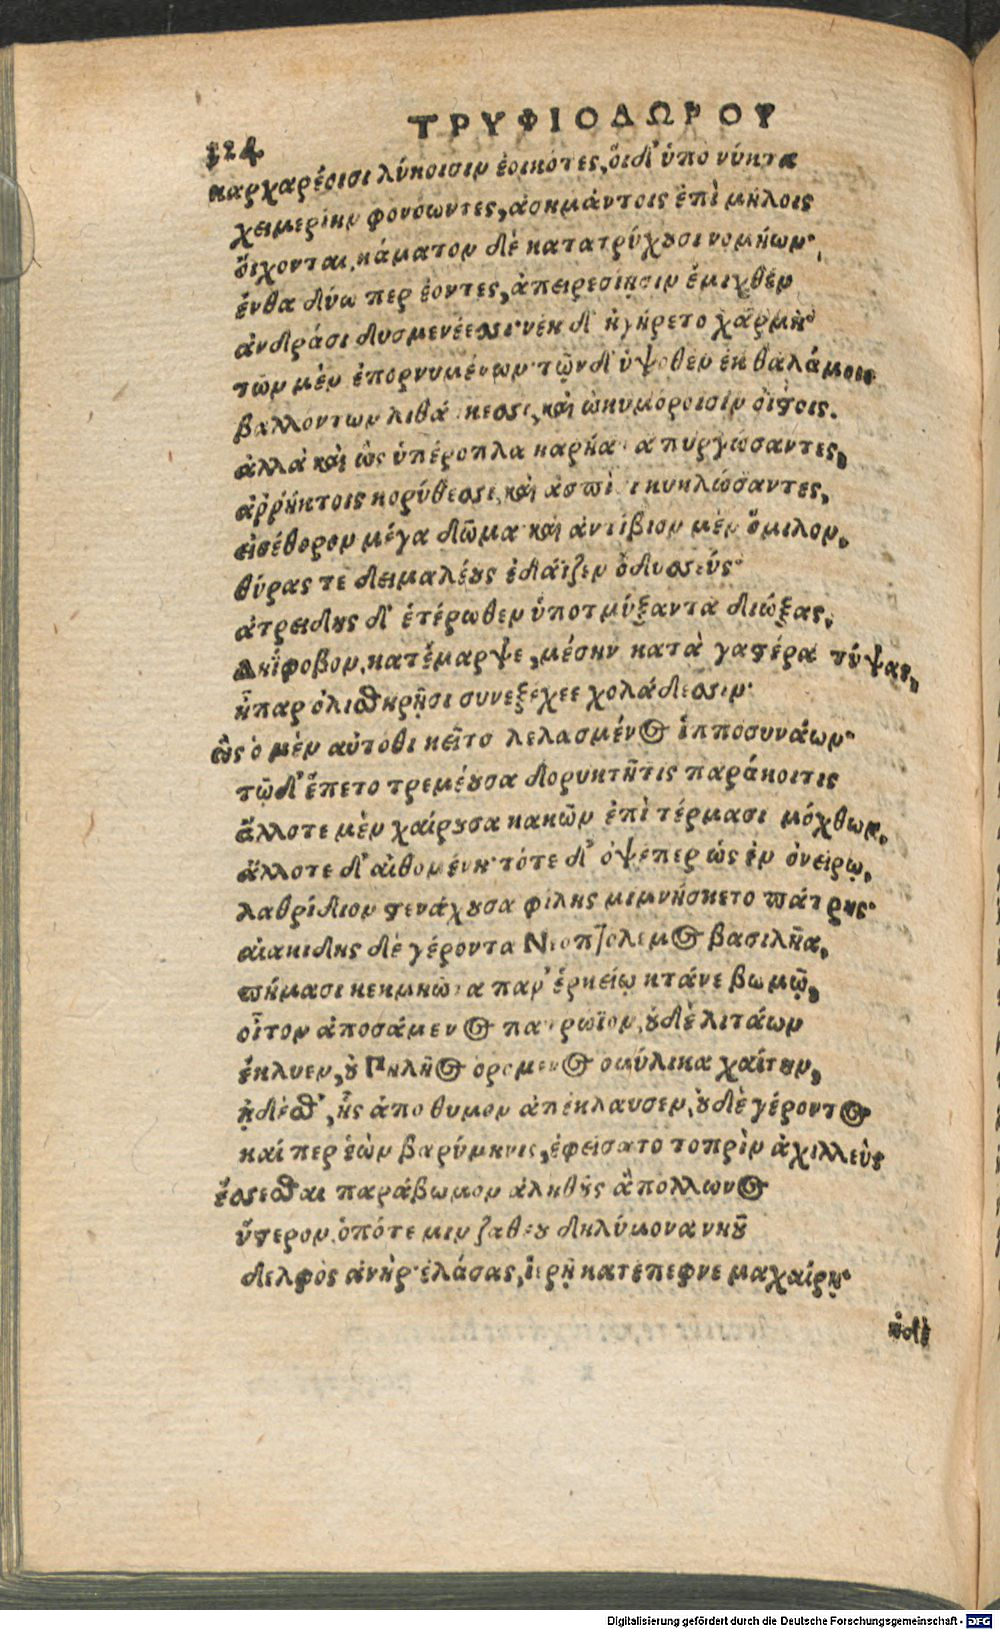 ΤΡΥΦΙΟΔΩΡΟΥ
324
καρχαρέοισι λύκοισιν ἐοικότες, οἵ δ' ὑπο νύκτα
χειμερίην φονόωντες, ἀσημάντοις ἐπὶ μήλοις
οἴχονται, κάματον δὲ κατατρύχουσι νομήων·
ἔνθα δύω περ ἐόντες, ἀπειρεσίῃσιν ἔμιχθεν
ἀνδράσι δυσμενέεσσι· νέη δ' ἠγήρετο χάρμη
τῶν μὲν ἐπορνυμένων· τῶν δ' ὑψόθεν ἐκ θαλάμοιο
βαλλόντων λιθάκεσσι, καὶ ὠκυμόροισιν ὀϊστοῖς.
ἀλλὰ καὶ ὣς ὑπέροπλα καρήατα πυργώσαντες,
ἀῤῥήκτοις κορύθεσσι, καὶ ἀσπίσι κυκλώσαντες,
εἰσέθορον μέγα δῶμα· καὶ ἀντίβιον μὲν ὅμιλον,
θύρας τε δειμαλέους ἐδάϊζεν ὀδυσσεύς·
ἀτρείδης δ' ἑτέρωθεν ὑποτμύξαντα διώξας,
Δηΐφοβον, κατέμαρψε, μέσην κατὰ γαστέρα τύψας,
ἧπαρ ὀλισθηρῇσι συνεξέχεε χολάδεσσιν·
ὣς ὁ μὲν αὐτόθι κεῖτο λελασμένος ἱπποσυνάων·
τῷ δ' ἕπετο τρεμέουσα δορυκτῆτις παράκοιτις
ἄλλοτε μὲν χαίρουσα κακῶν ἐπὶ τέρμασι μόχθων,
ἄλλοτε δ' αἰθομένη· τότε δ' ὀψέπερ ὡς ἐν ὀνείρῳ,
λαθρίδιον στενάχουσα φίλης μιμνήσκετο πάτρης·
αἰακίδης δὲ γέροντα Νεοπτόλεμος βασιλῆα,
πήμασι κεκμηῶτα παρ' ἑρκείῳ κτάνε βωμῷ,
οἶτον ἀποσάμενος πατρώϊον, οὐδὲ λιτάων
ἔκλυεν, οὐ Πηλῆος ὁρόμενος ὁμήλικα χαίτην,
ᾐδέσθ', ἧς ἀπο θυμὸν ἀπέκλαυσεν, οὐδὲ γέροντος
καί περ ἐὼν βαρύμηνις, ἐφείσατο τοπρὶν ἀχιλλεὺς
ἔσσεσθαι παράβωμον ἀληθοῦς ἀπόλλωνος
ὕστερον, ὁπότε μιν ζαθέου δηλήμονα νηοῦ
δελφὸς ἀνὴρ ἐλάσας, ἱερῇ κατέπεφνε μαχαίρῃ·
Digitalisierung gefördert durch die Deutsche Forschungsgemeinschaft - DFG